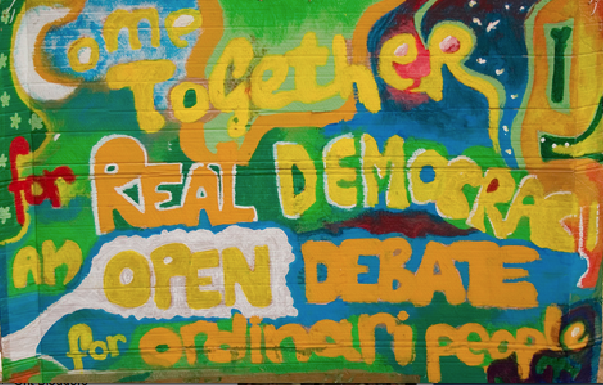 Come
TogetheR
for REAL DEMOCRACY
AN OPEN DEBATE
for ordinari people